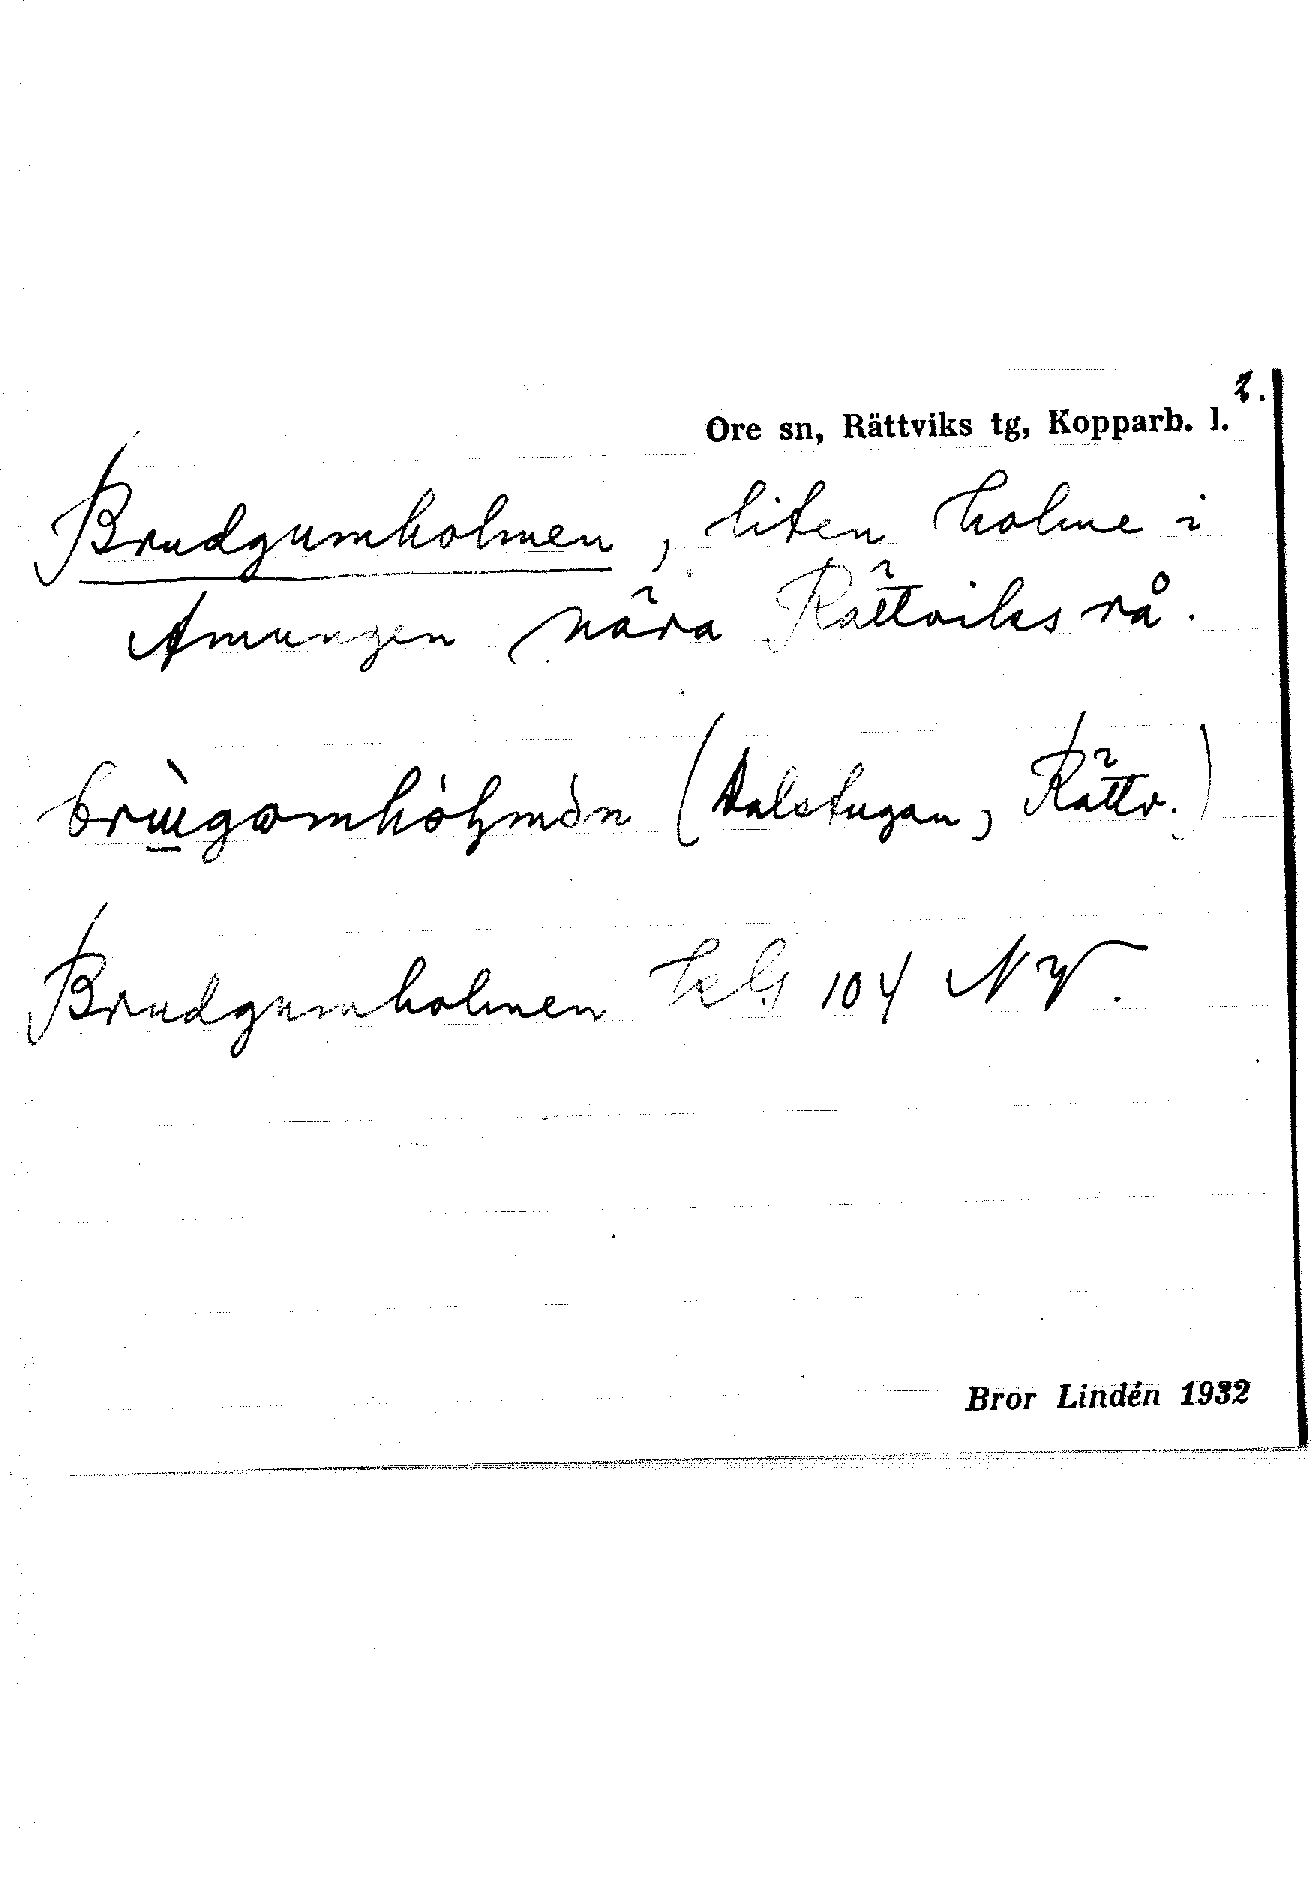 2.
Ore sn, Rättviks tg, Kopparb. l.
Brudgumholmen, liten holme i
Amungen nära Rättviks rå.
(Dalstugan, Rättv.)
Brudgumholmen 104 NV.
Bror Lindén 1932